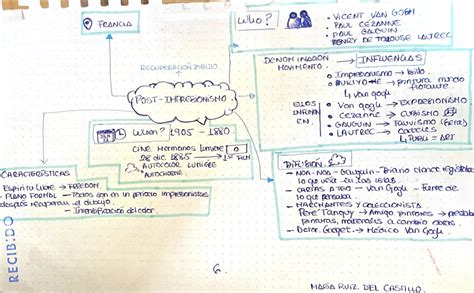 FRANCIA
Who?
• VICENT VAN GOGH
• PAUL CEZANNE
• PAUL GAUGUIN
• HENRY DE TOULOUSE LAUTREC
RECUPERACIÓN DIBUJO
POST-IMPRESIONISMO
DENOMINACIÓN MOVIMIENTO
INFLUENCIAS
Impresionismo → brillo
→ pinturas mundo flotante
↳ Van Gogh
ELLOS INFLUYEN EN
Van Gogh → EXPRESIONISMO
Cezanne → CUBISMO
GAUGUIN → FAUVISMO (fieras)
LAUTREC → CARTELES
When? 1905 - 1880
CINE Hermanos Lumière
28 dic 1895 → 1st FILM
AUTOCHROME
CARACTERÍSTICAS
Espíritu Libre → FREEDOM
PLANO FORMAL → Todos son en un periodo impresionistas
después recuperan el dibujo
- Intensificación del color
DIFUSIÓN
- NOA-NOA - Gauguin - Diario dónde registra lo que veía en las islas.
- CARTAS A TEO → Van Gogh - Fuente de lo que pensaba.
- MARCHANTES y COLECCIONISTA
Père Tanguy → Amigo pintores → prestaba pinturas, materiales a cambio obras.
- Doctor Gachet → Médico Van Gogh
RECIBIDO
6
MARÍA RUIZ DEL CASTILLO